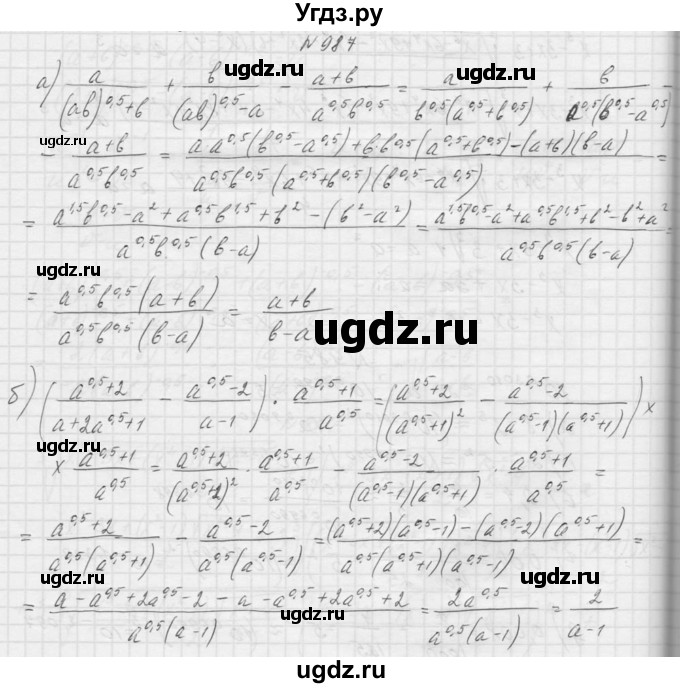 Угдз.ру
N 987
а) a/((ab)^0,5+b) + b/((ab)^0,5-a) - (a+b)/(a^0,5b^0,5) = a/(b^0,5(a^0,5+b^0,5)) + b/(a^0,5(b^0,5-a^0,5)) -
- (a+b)/(a^0,5b^0,5) = (a·a^0,5(b^0,5-a^0,5)+b·b^0,5(a^0,5+b^0,5)-(a+b)(b-a))/(a^0,5b^0,5(a^0,5+b^0,5)(b^0,5-a^0,5)) =
= (a^1,5b^0,5-a^2+a^0,5b^1,5+b^2-(b^2-a^2))/(a^0,5b^0,5(b-a)) = (a^1,5b^0,5-a^2+a^0,5b^1,5+b^2-b^2+a^2)/(a^0,5b^0,5(b-a)) =
= (a^0,5b^0,5(a+b))/(a^0,5b^0,5(b-a)) = (a+b)/(b-a)
б) ((a^0,5+2)/(a+2a^0,5+1) - (a^0,5-2)/(a-1)) · (a^0,5+1)/a^0,5 = ((a^0,5+2)/(a^0,5+1)^2 - (a^0,5-2)/((a^0,5-1)(a^0,5+1))) x
x (a^0,5+1)/a^0,5 = (a^0,5+2)/(a^0,5+1)^2 · (a^0,5+1)/a^0,5 - (a^0,5-2)/((a^0,5-1)(a^0,5+1)) · (a^0,5+1)/a^0,5 =
= (a^0,5+2)/(a^0,5(a^0,5+1)) - (a^0,5-2)/(a^0,5(a^0,5-1)) = ((a^0,5+2)(a^0,5-1)-(a^0,5-2)(a^0,5+1))/(a^0,5(a^0,5+1)(a^0,5-1)) =
= (a-a^0,5+2a^0,5-2-a-a^0,5+2a^0,5+2)/(a^0,5(a-1)) = 2a^0,5/(a^0,5(a-1)) = 2/(a-1)
ugdz.ru
ugdz.ru
ugdz.ru
ugdz.ru
ugdz.ru
ugdz.ru
ugdz.ru
ugdz.ru
ugdz.ru
ugdz.ru
ugdz.ru
ugdz.ru
ugdz.ru
ugdz.ru